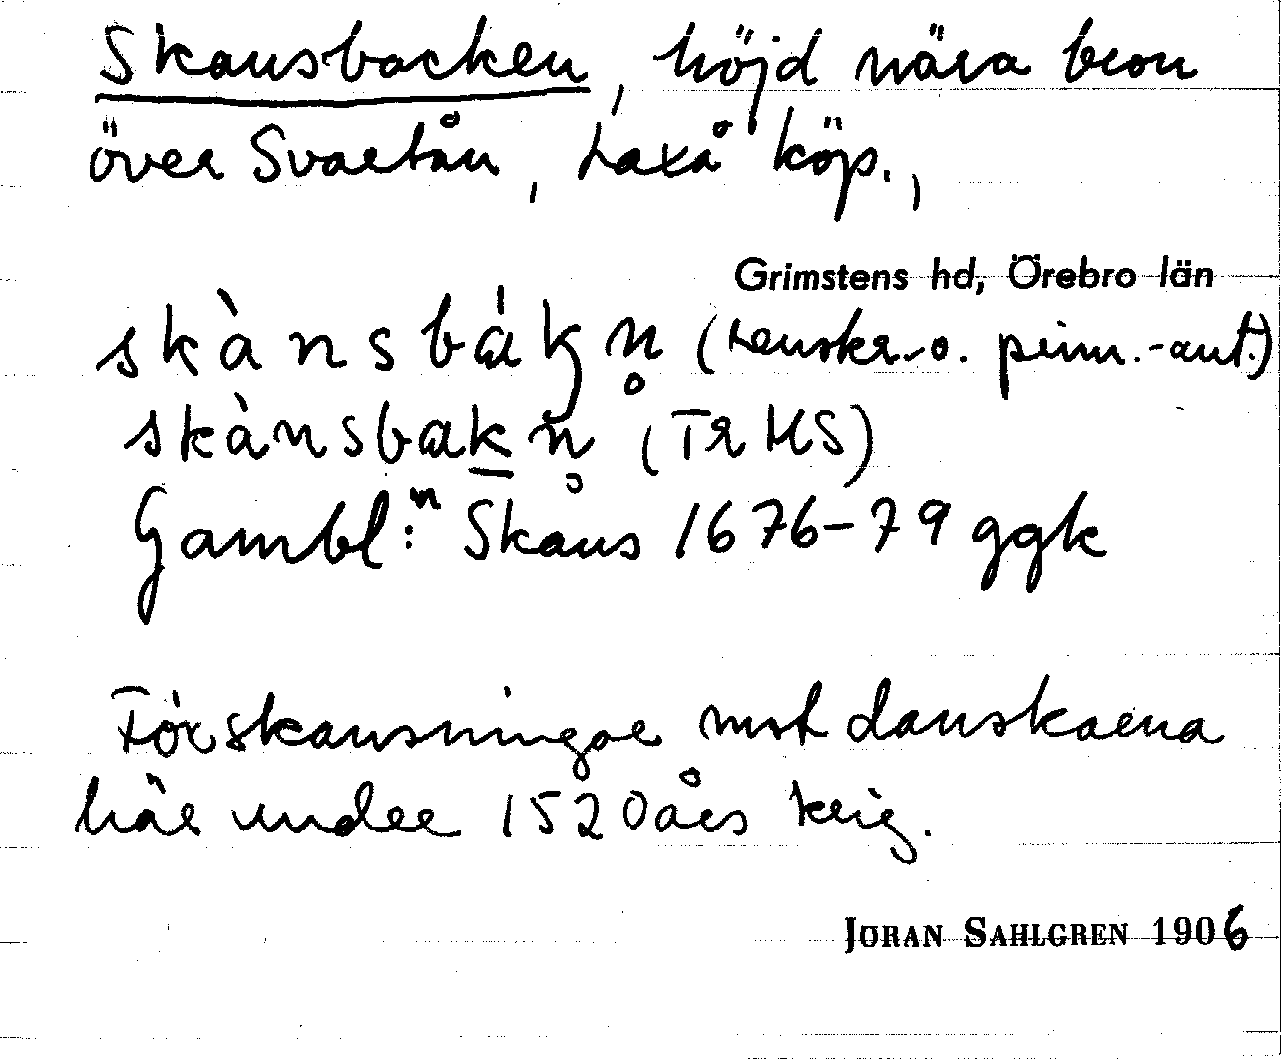 Skansbacken, höjd nära bron
över Svartån, Laxå köp.,
Grimstens hd, Örebro län
skànsbákn̥ (renskr. o. prim.-ant.)
skànsbakn̥ (Tr HS)
Gambl:n Skans 1676–79 ggk
Förskansningar mot danskarna
här under 1520 års krig.
JÖRAN SAHLGREN 1906